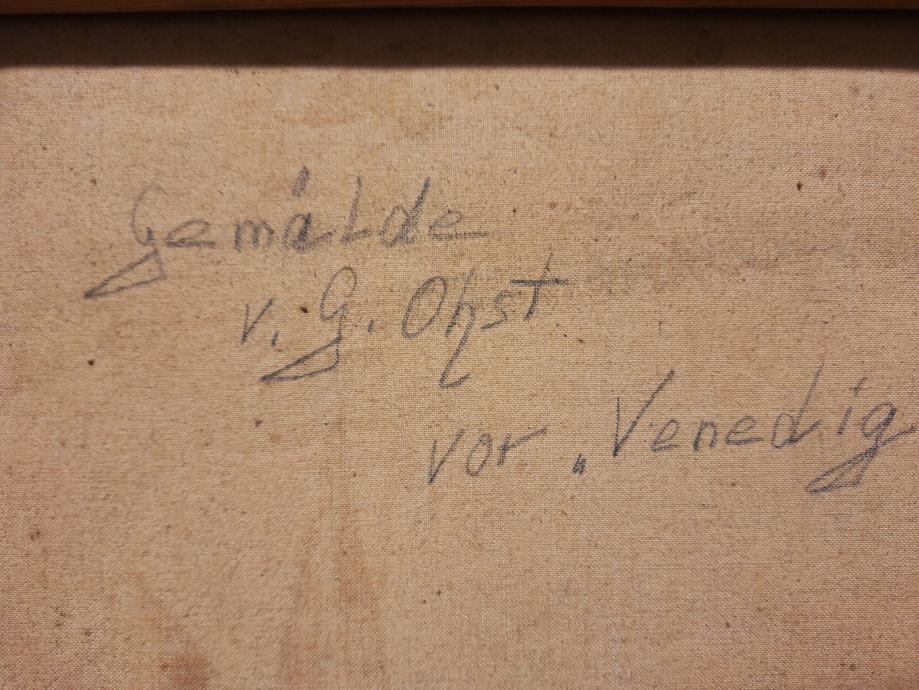 Gemälde
v. G. Ohst
vor „Venedig